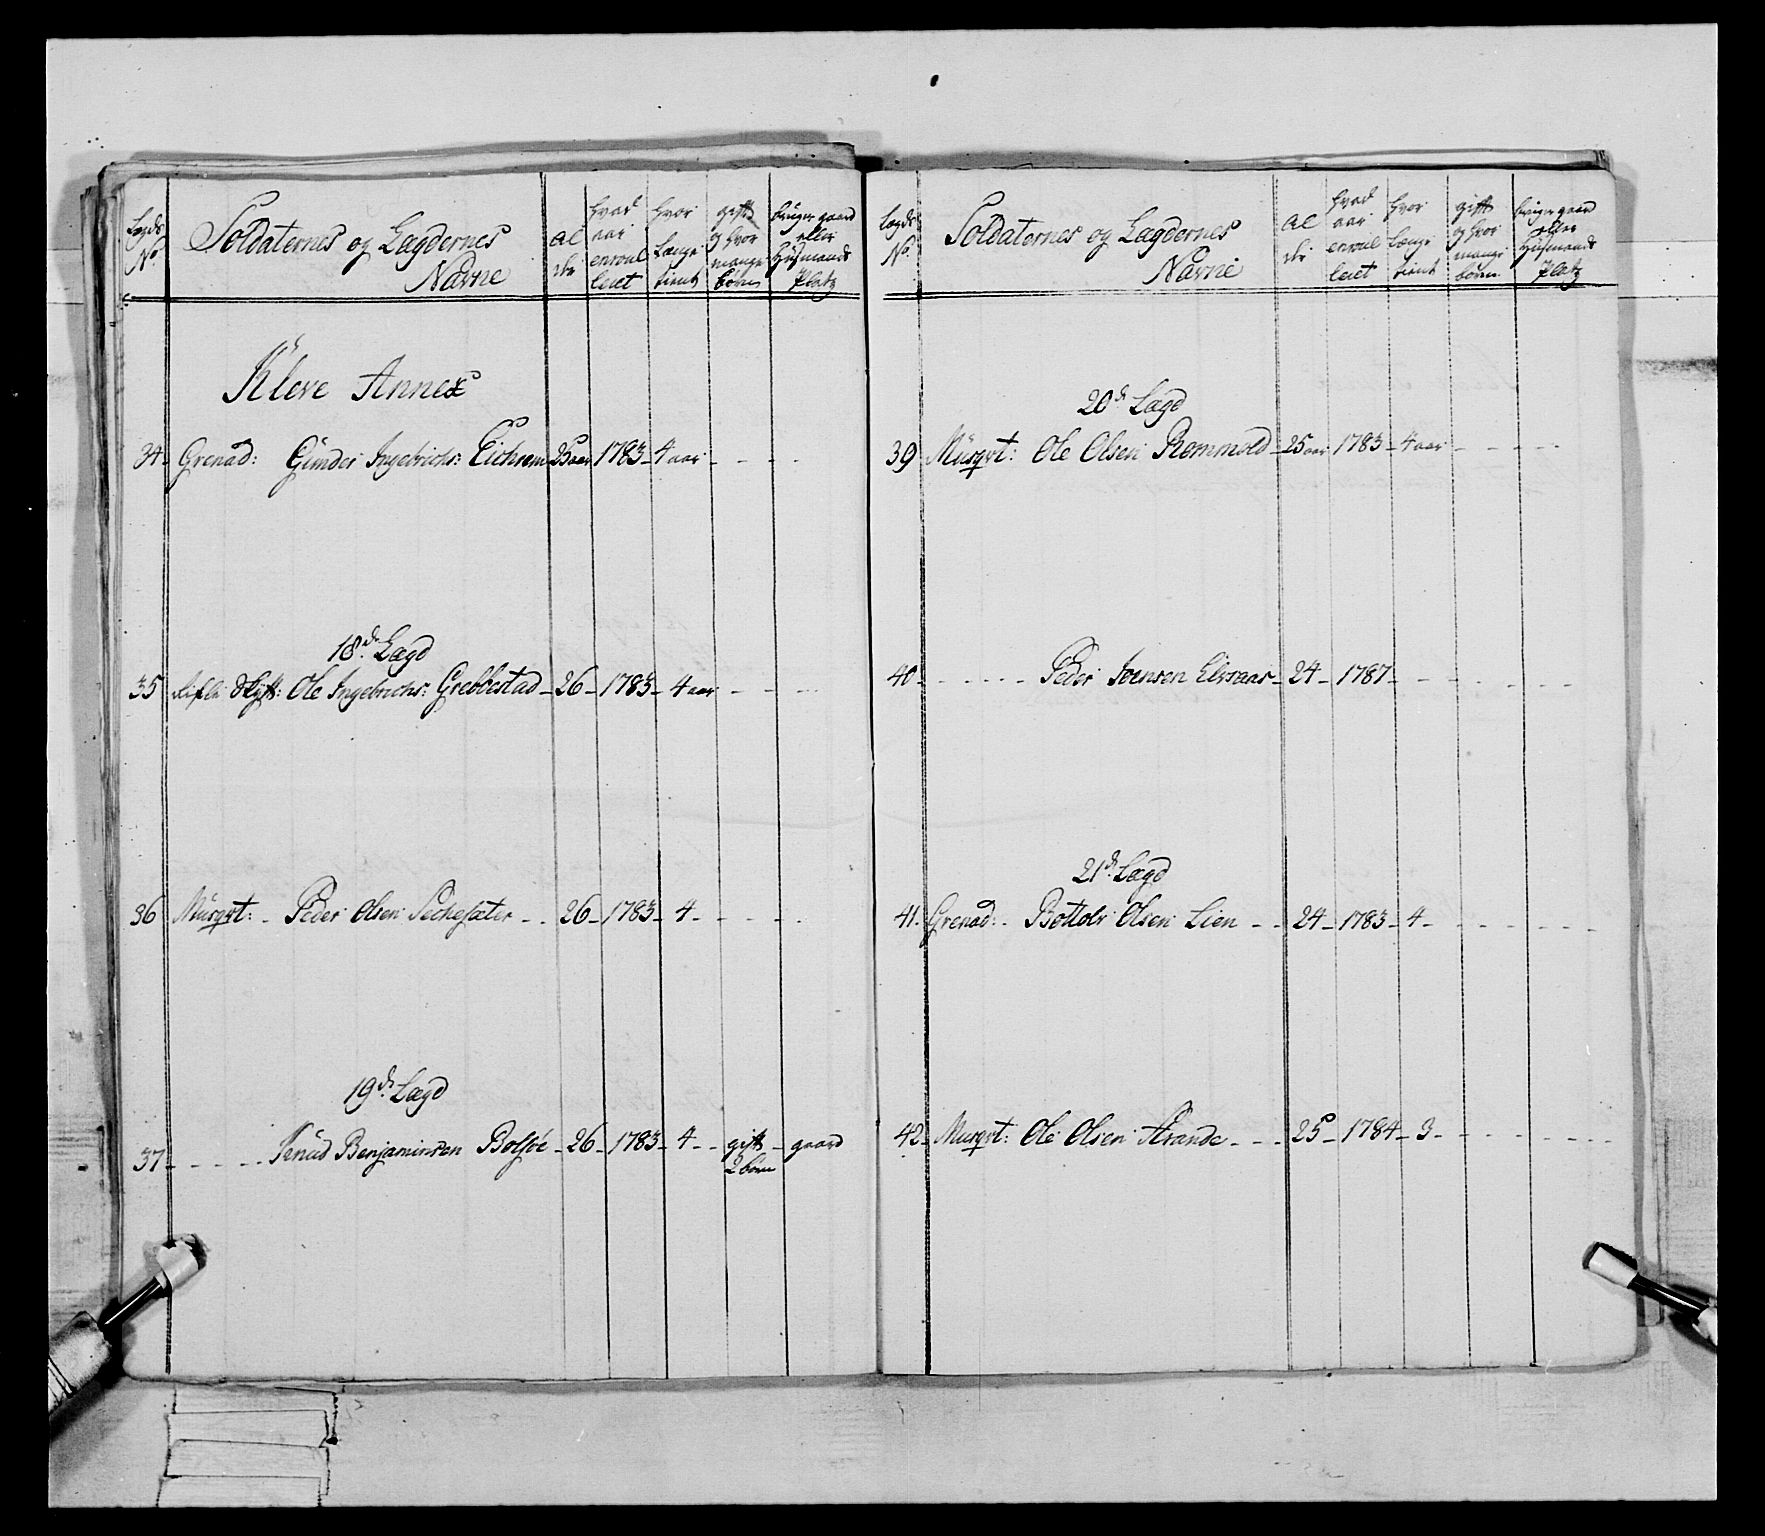 Lægds No
Soldaternes og Lægdernes Navne
Alder
hvad aar enroulleret
hvor længe tient
gift og hvor mange børn
bruger gaard eller Huusmands Platz
Kleve Annex
34. Grenad: Gunder Ingebrichs: 25 aar 1783 - 4 aar - - - -
18de Lægd
35 Rifle Skytt: Ole Ingebrichs: Grebbestad - 26 - 1783 - 4 aar - - -
36 Musqvt: - Peder Olsen Sechesæter - - 26 - 1783 - 4 - - - - -
19de Lægd
37 - - - - - Knud Benjaminsen Bolsöe - 26 - 1783 - 4 - - gift - gaard
2 börn
Lægds No.
Soldaternes og Lægdernes Navne
Alder
hvad aar enroulleret
hvor længe tient
gift og hvor mange børn
bruger gaard eller Huusmands Platz
20de Lægd
39 Musqvt: Ole Olsen Rommold - 25 aar 1783 - 4 aar - - - -
40 - - - - - - Peder Iversen - 24 - 1787 - - - - - - -
21de Lægd
41. Grenad: - Bottolv Olsen Lien - - 24 - 1783 - 4 - - - - - -
42 - Musqvt: Ole Olsen Strande - - - 25 - 1784 - 3 - - - - - -